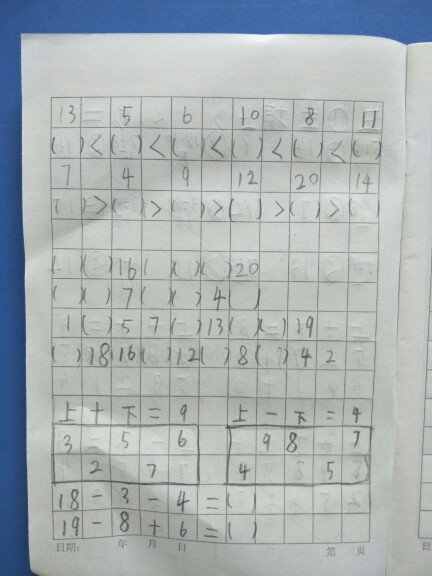 13 5 6 10 8 11
( ) < ( ) < ( ) < ( ) < ( ) < ( )
7 4 9 12 20 14
( ) > ( ) > ( ) > ( ) > ( ) > ( )
( ) ( ) 16 ( ) ( ) ( ) 20
( ) ( ) 7 ( ) ( ) 4 ( )
1 ( ) 5 7 ( ) 13 ( ) ( ) 19
( ) 18 16 ( ) 12 ( ) 8 ( ) 4 2
上 + 下 = 9 上 - 下 = 4
3 5 6 9 8 7
2 7 4 5
18 - 3 - 4 = ( )
19 - 8 + 6 = ( )
日期: 年 月 日 第 页